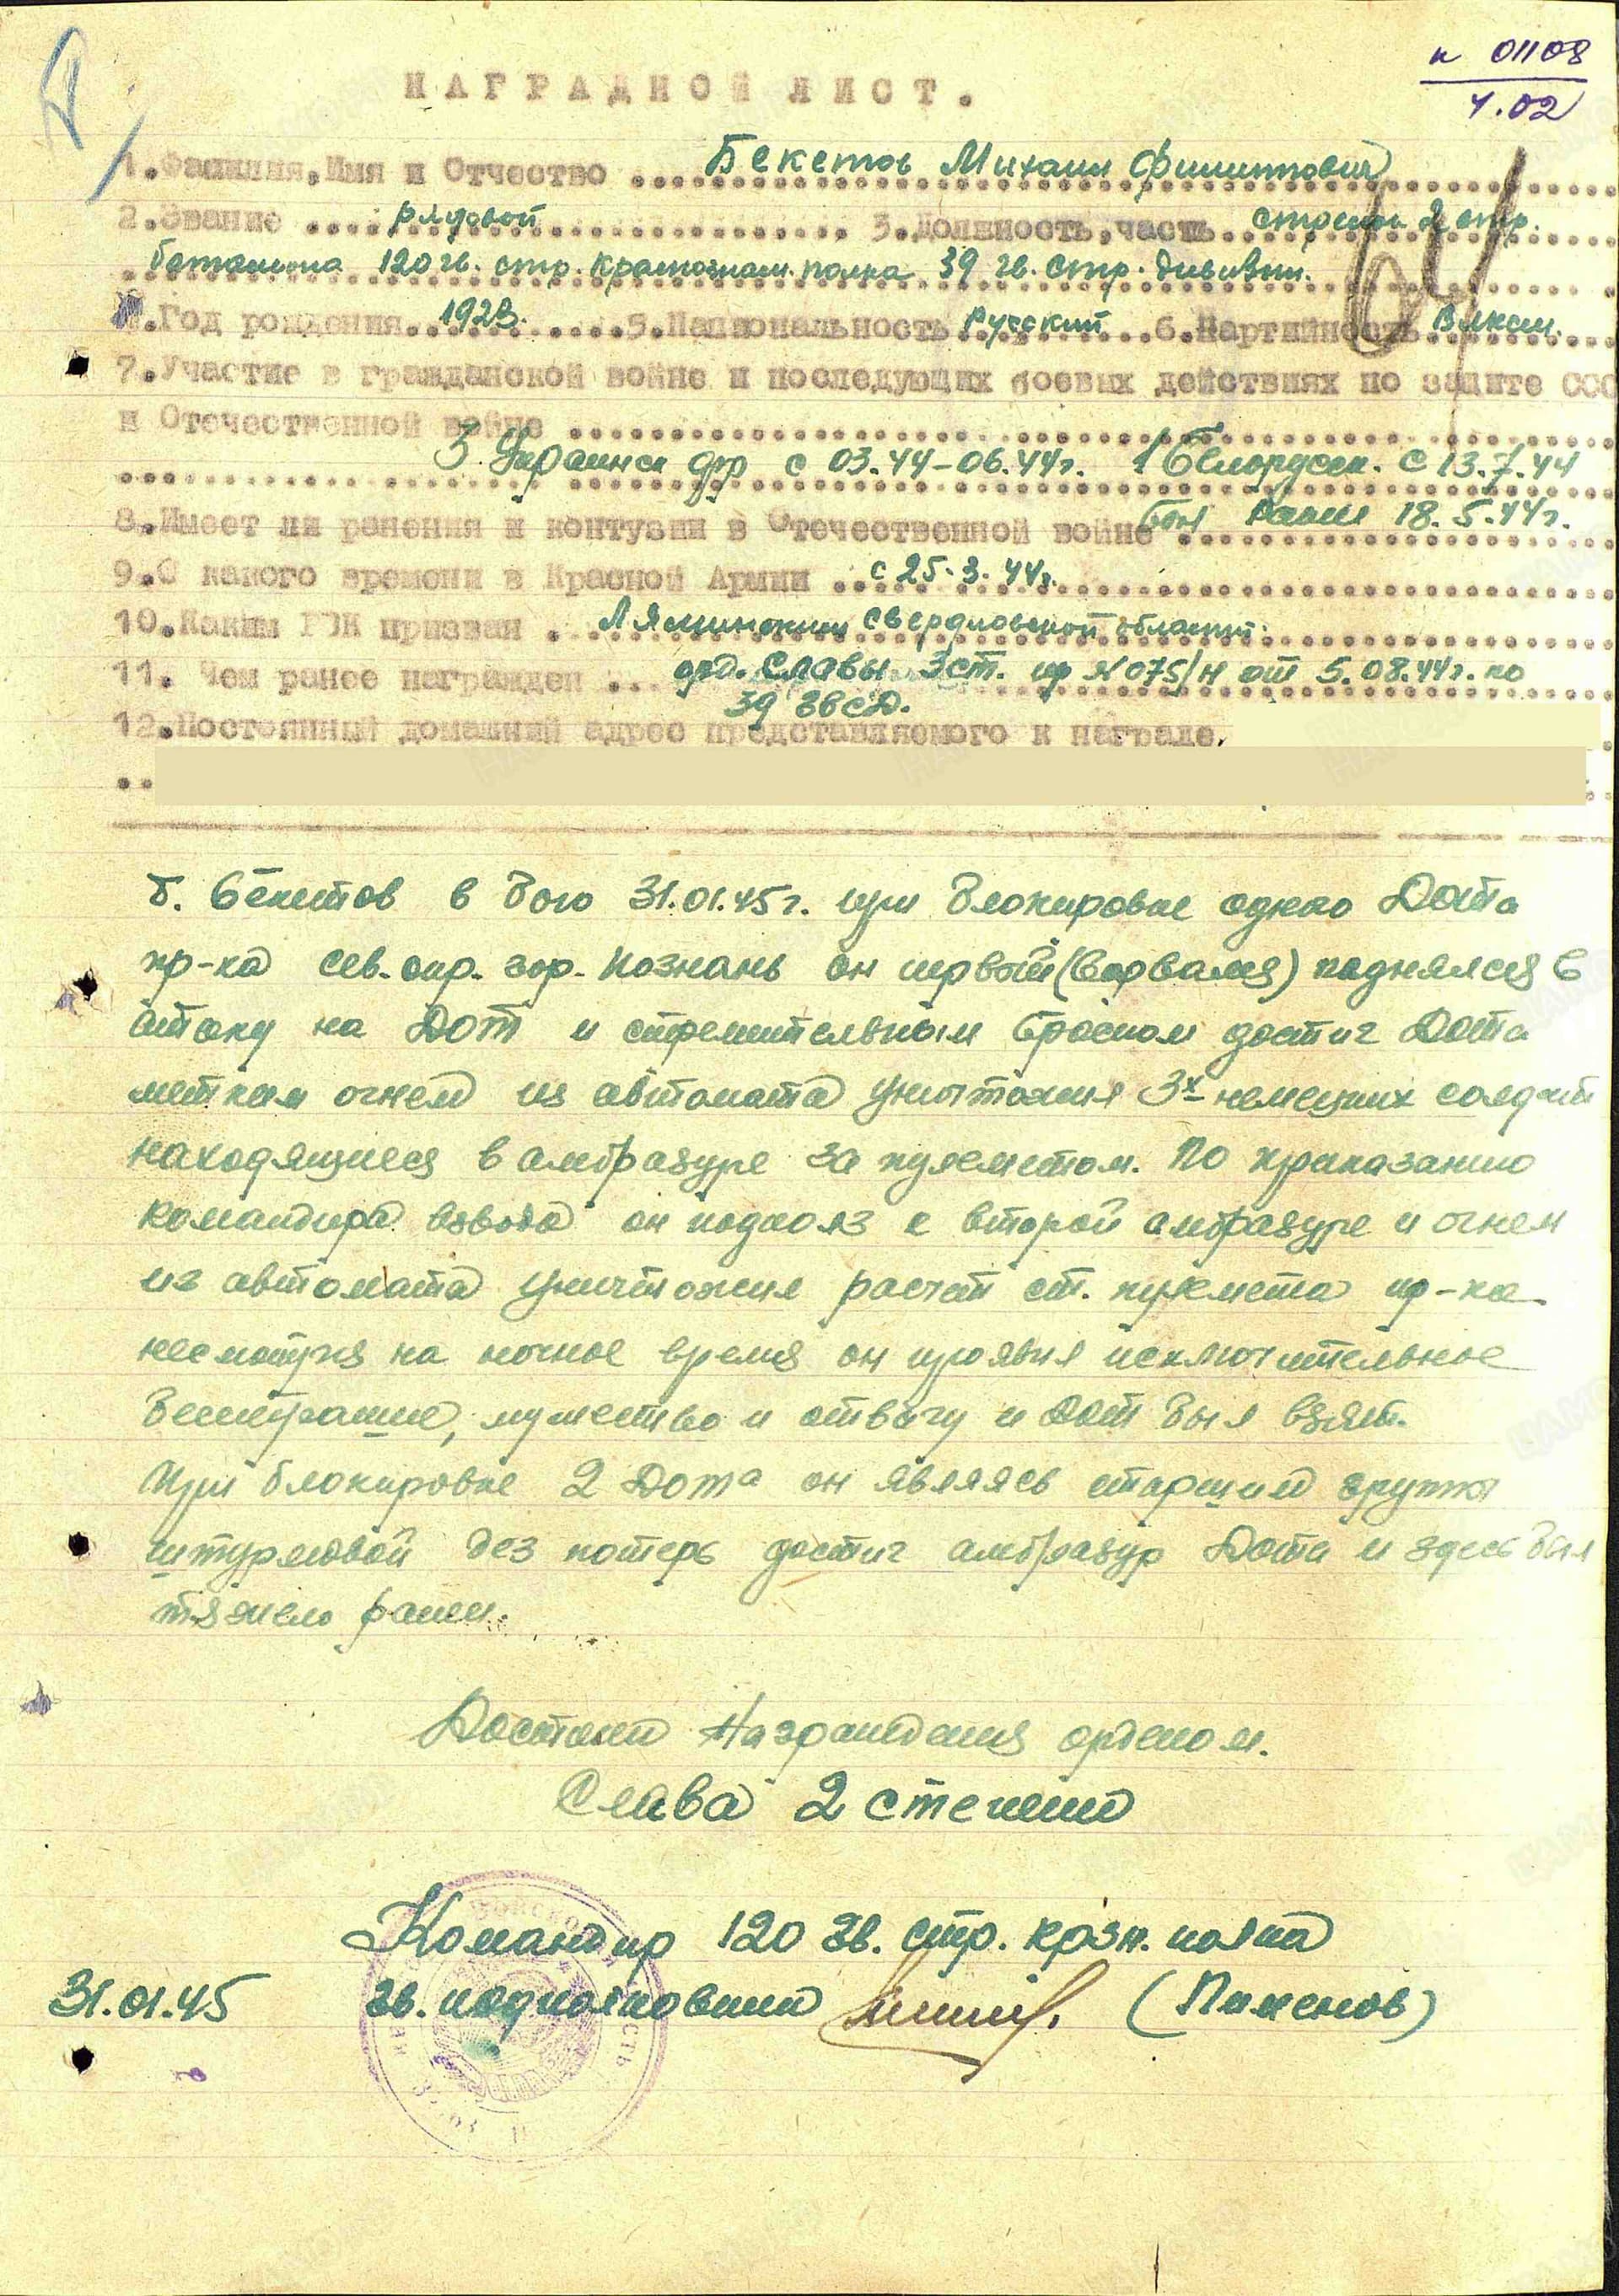 № 01108
4.02
НАГРАДНОЙ ЛИСТ.
1.Фамилия,Имя и Отчество ... Бекетов Михаил Филиппович
2.Звание .... рядовой ... 3.Должность,часть.. стрелок 2 стр.
батальона 120 гв. стр. краснознам. полка 39 гв. стр. дивизии.
4.Год рождения... 1923. ...5.Национальность русский ...6.Партийность Влксм.
7.Участие в гражданской войне и последующих боевых действиях по защите ССС
и Отечественной войне ....
3 Украинск фр с 03.44-06.44г. 1 Белорусск. с 13.7.44
8.Имеет ли ранения и контузии в Отечественной войне был ранен 18.5.44г.
9.С какого времени в Красной Армии ... с 25.3.44г.
10.Каким РВК призван . Лялинским Свердловской области.
11. Чем ранее награжден .. орд. Славы 3ст. пр №075/н от 5.08.44г. по
39 гвсд.
12.Постоянный домашний адрес представляемого к награде.
т. Бекетов в бою 31.01.45г. при блокировке одного Дота
пр-ка сев. окр. гор. Познань он первый (ворвался) поднялся в
атаку на Дот и стремительным броском достиг Дота
метким огнем из автомата уничтожил 3х немецких солдат
находящиеся в амбразуре за пулеметом. По приказанию
командира взвода он подполз к второй амбразуре и огнем
из автомата уничтожил расчет ст. пулемета пр-ка
несмотря на ночное время он проявил исключительное
бесстрашие, мужество и отвагу и Дот был взят.
При блокировке 2 Дота он являясь старшим группы
штурмовой без потерь достиг амбразур Дота и здесь был
тяжело ранен.
Достоин Награждения орденом.
Слава 2 степени
Командир 120 гв. стр. крзн. полка
31.01.45 гв. подполковник (Пименов)